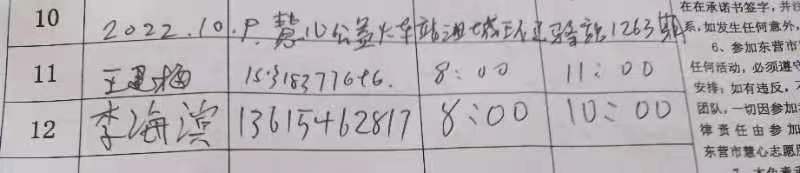 10 2022.10.9. 慧心公益火车站 1263期
11 王 15318377646. 8:00 11:00
12 李海滨 13615462817 8:00 10:00
在在承诺书签字，并
系，如发生任何意外，
6、参加东营市
任何活动，必须遵守
安排；如有违反，不
团队，一切因参加
律责任由参加
东营市慧心志愿